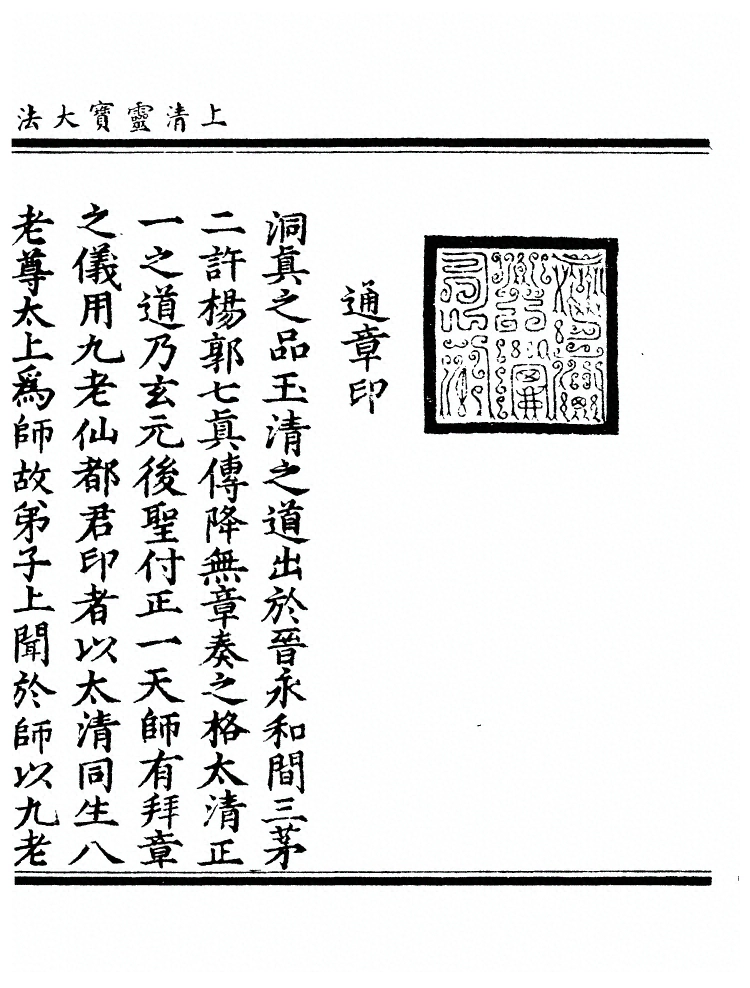 上清靈寶大法
通章印
洞眞之品玉清之道出於晉永和間三茅
二許楊郭七眞傳降無章奏之格太清正
一之道乃玄元後聖付正一天師有拜章
之儀用九老仙都君印者以太清同生八
老尊太上爲師故弟子上聞於師以九老